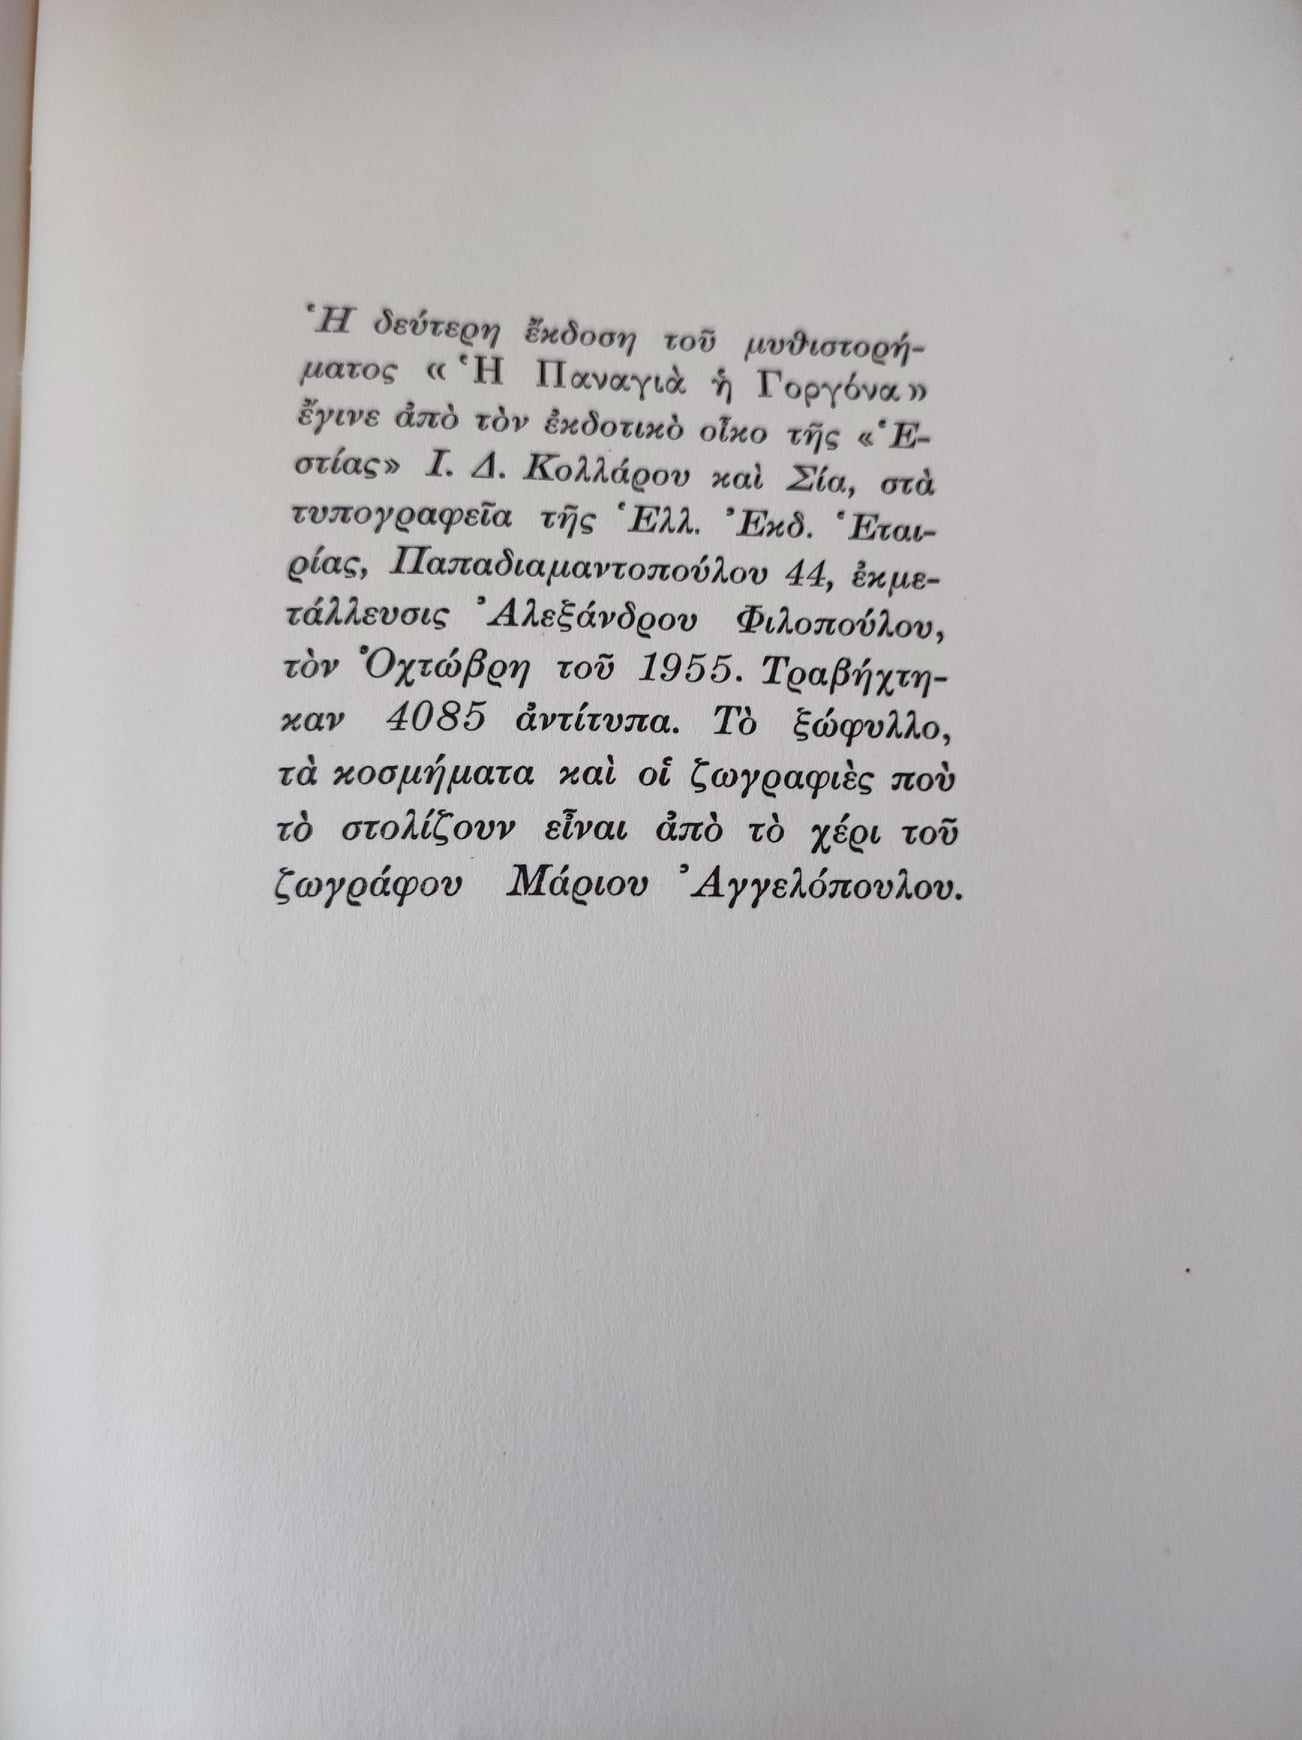 Ἡ δεύτερη ἔκδοση τοῦ μυθιστορή-
ματος «Ἡ Παναγιὰ ἡ Γοργόνα»
ἔγινε ἀπὸ τὸν ἐκδοτικὸ οἶκο τῆς «Ἑ-
στίας» Ι. Δ. Κολλάρου καὶ Σία, στὰ
τυπογραφεῖα τῆς Ἑλλ. Ἐκδ. Ἑται-
ρίας, Παπαδιαμαντοπούλου 44, ἐκμε-
τάλλευσις Ἀλεξάνδρου Φιλοπούλου,
τὸν Ὀχτώβρη τοῦ 1955. Τραβήχτη-
καν 4085 ἀντίτυπα. Τὸ ξώφυλλο,
τὰ κοσμήματα καὶ οἱ ζωγραφιὲς ποὺ
τὸ στολίζουν εἶναι ἀπὸ τὸ χέρι τοῦ
ζωγράφου Μάριου Ἀγγελόπουλου.